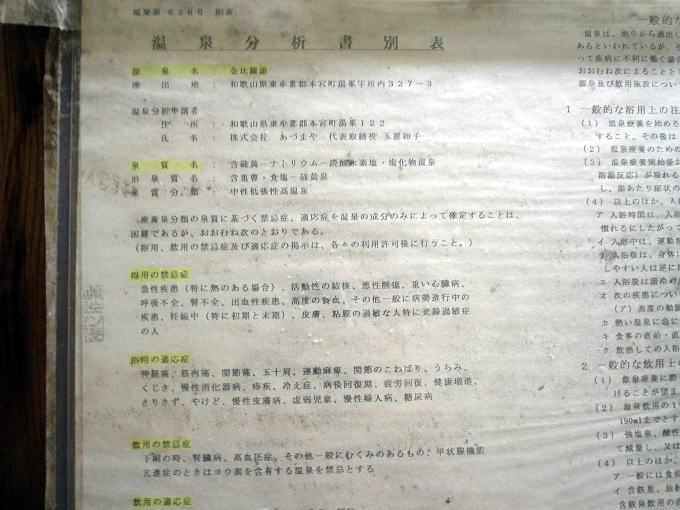 温泉第826号 別表
温泉分析書別表
源泉名 : 金比羅湯
湧出地 : 和歌山県東牟婁郡本宮町湯峯字垣内327－3
温泉分析申請者
住所 : 和歌山県東牟婁郡本宮町湯峯122
氏名 : 株式会社 あづまや 代表取締役 玉置和子
泉質名 : 含硫黄－ナトリウム－炭酸水素塩・塩化物温泉
旧泉質名 : 含重曹・食塩－硫黄泉
泉質分類 : 中性低張性高温泉
療養泉分類の泉質に基づく禁忌症、適応症を温泉の成分のみによって確定することは、
困難であるが、おおむね次のとおりである。
(浴用、飲用の禁忌症及び適応症の掲示は、各々の利用許可後に行うこと。)
浴用の禁忌症
急性疾患（特に熱のある場合）、活動性の結核、悪性腫瘍、重い心臓病、
呼吸不全、腎不全、出血性疾患、高度の貧血、その他一般に病勢進行中の
疾患、妊娠中（特に初期と末期）、皮膚、粘膜の過敏な人特に光線過敏症
の人
浴用の適応症
神経痛、筋肉痛、関節痛、五十肩、運動麻痺、関節のこわばり、うちみ、
くじき、慢性消化器病、痔疾、冷え症、病後回復期、疲労回復、健康増進、
きりきず、やけど、慢性皮膚病、虚弱児童、慢性婦人病、糖尿病
飲用の禁忌症
下痢の時、腎臓病、高血圧症、その他一般にむくみのあるもの、甲状腺機能
亢進症のときはヨウ素を含有する温泉を禁忌とする
飲用の適応症
一般的な
温泉は、地中から湧出し
あるといわれているが、そ
って疾病に不利に働く場合
おおむね次によることとす
源泉及び飲用施設につい
1 一般的な浴用上の注
(1) 温泉療養を始める
すること。その後は
(2) 温泉療養のための
(3) 温泉療養開始後お
浴湯反応）が現れる
し、湯あたり症状の
(4) 以上のほか、入
ア 入浴時間は、入
慣れるにしたがっ
イ 入浴中は、運動
ウ 入浴後は、身体に
しやすい人は逆に
エ 入浴後は湯冷め
オ 次の疾患につい
(ア) 高度の動脈
カ 熱い温泉に急に
キ 食事の直前・直
ク 飲酒しての入浴
2 一般的な飲用上
(1) 飲泉療養に際
けることが望ま
(2) 温泉飲用の1
190mlまでと
(3) 強塩泉、酸性
て減量し、又は
(4) 以上のほか、
ア 一般には食前
イ 含鉄泉、放射
含鉄泉飲用の直